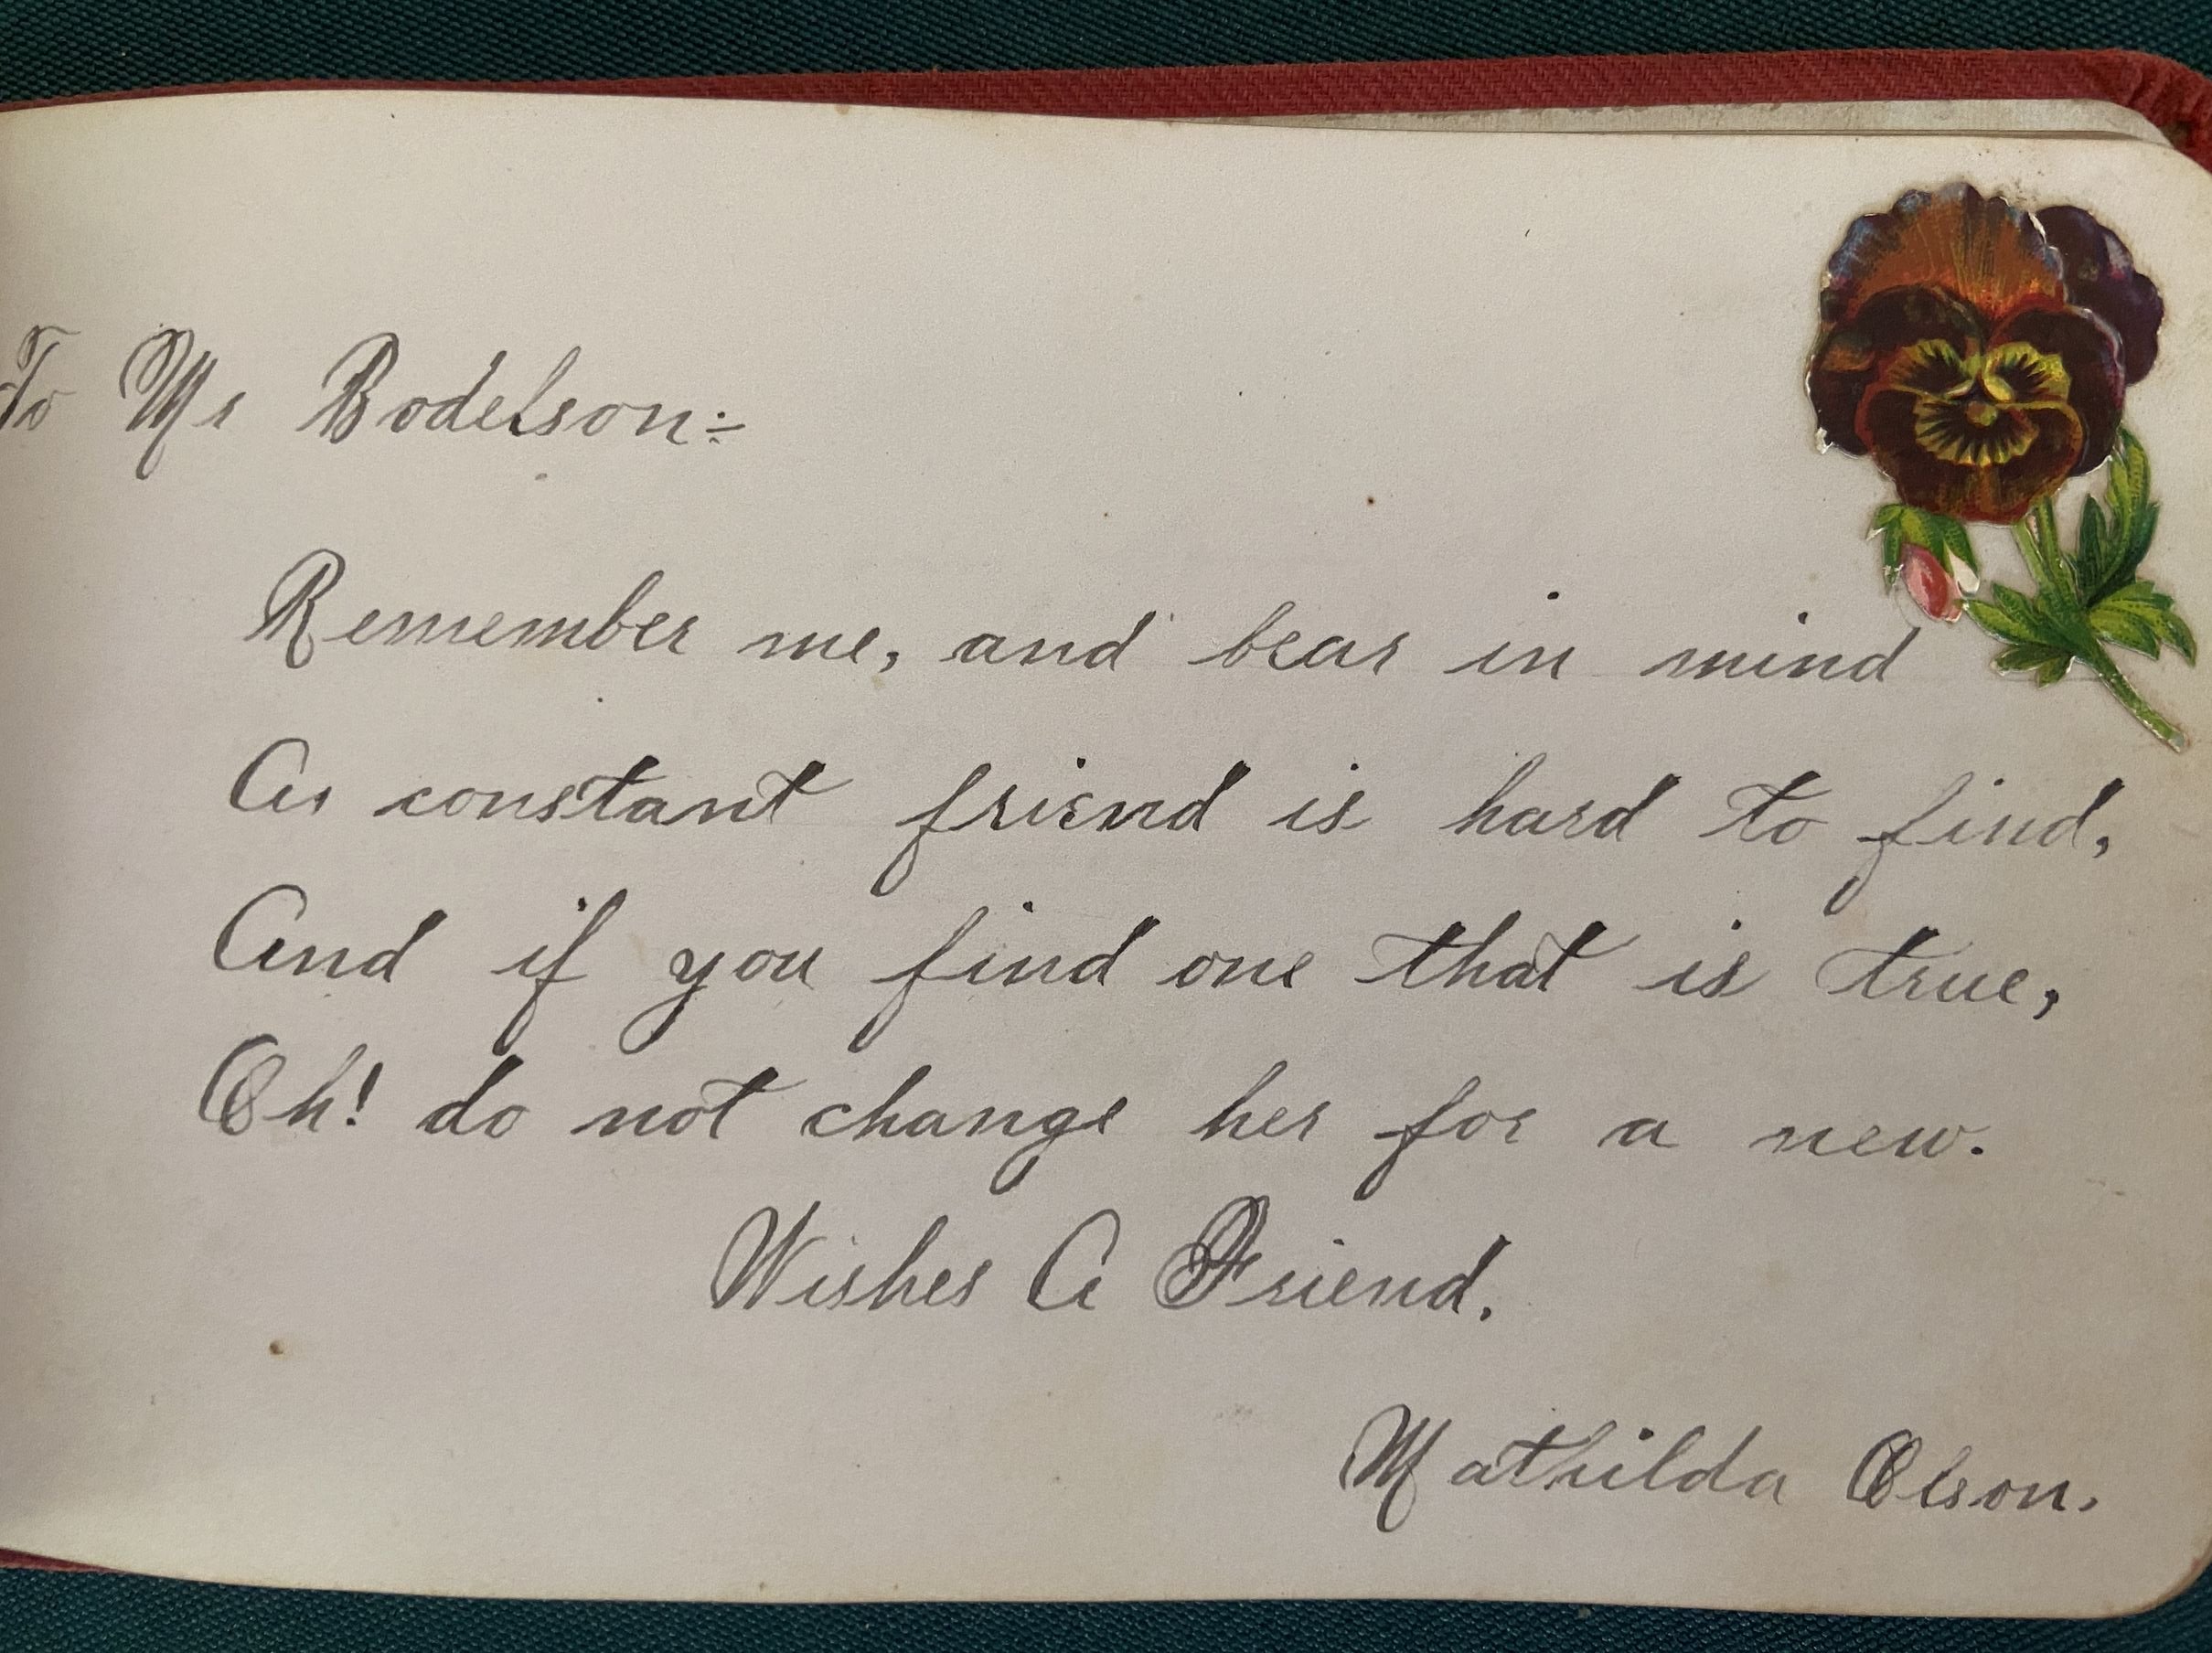 To Mr Bodelson:-
Remember me, and bear in mind
A constant friend is hard to find,
And if you find one that is true,
Oh! do not change her for a new.
Wishes A Friend.
Mathilda Olson.